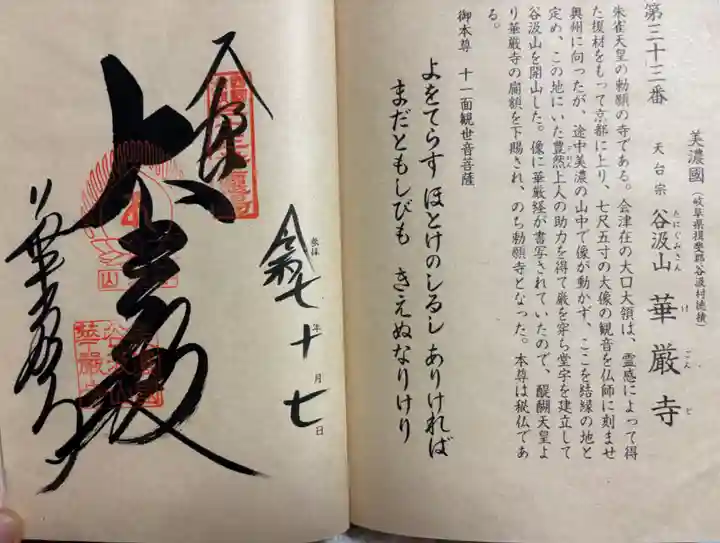 第三十三番
美濃國（岐阜県揖斐郡谷汲村徳積）
天台宗 谷汲山 華厳寺
たにぐみさん け ごん じ
朱雀天皇の勅願の寺である。会津在の大口大領は、霊感によって得
た復材をもって京都に上り、七尺五寸の大像の観音を仏師に刻ませ
奥州に向ったが、途中美濃の山中で像が動かず、ここを結縁の地と
定め、この地にいた豊然上人の助力を得て厳を穿ち堂宇を建立して
谷汲山を開山した。像に華厳経が書写されていたので、醍醐天皇よ
り華厳寺の扁額を下賜され、のち勅願寺となった。本尊は秘仏であ
る。
御本尊 十一面観世音菩薩
よをてらす ほとけのしるし ありければ
まだともしびも きえぬなりけり
参拝
令和七年十月七日
華厳寺